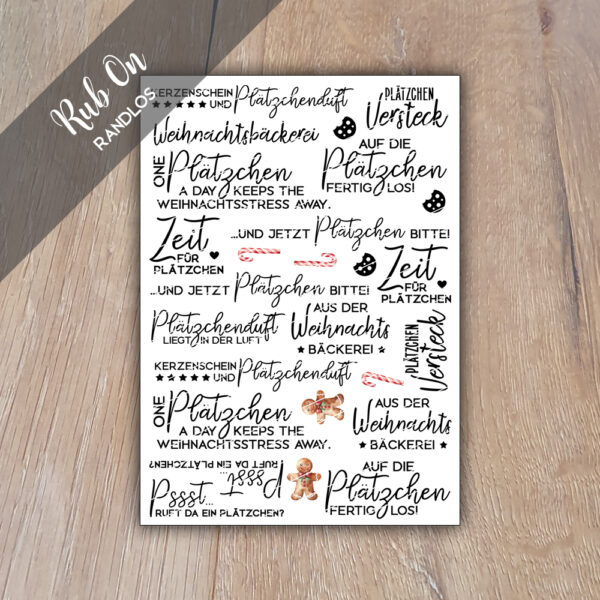 Rub On
RANDLOS
KERZENSCHEIN
UND Plätzchenduft
PLÄTZCHEN
Versteck
Weihnachtsbäckerei
AUF DIE
Plätzchen
FERTIG LOS!
ONE Plätzchen
A DAY KEEPS THE
WEIHNACHTSSTRESS AWAY.
Zeit
FÜR
PLÄTZCHEN
...UND JETZT Plätzchen BITTE!
Zeit
FÜR
PLÄTZCHEN
...UND JETZT Plätzchen BITTE!
AUS DER
Weihnachts
BÄCKEREI
Plätzchenduft
LIEGT IN DER LUFT
PLÄTZCHEN
Versteck
KERZENSCHEIN
UND Plätzchenduft
ONE Plätzchen
A DAY KEEPS THE
WEIHNACHTSSTRESS AWAY.
AUS DER
Weihnachts
BÄCKEREI
Pssst...
RUFT DA EIN PLÄTZCHEN?
Pssst...
RUFT DA EIN PLÄTZCHEN?
AUF DIE
Plätzchen
FERTIG LOS!